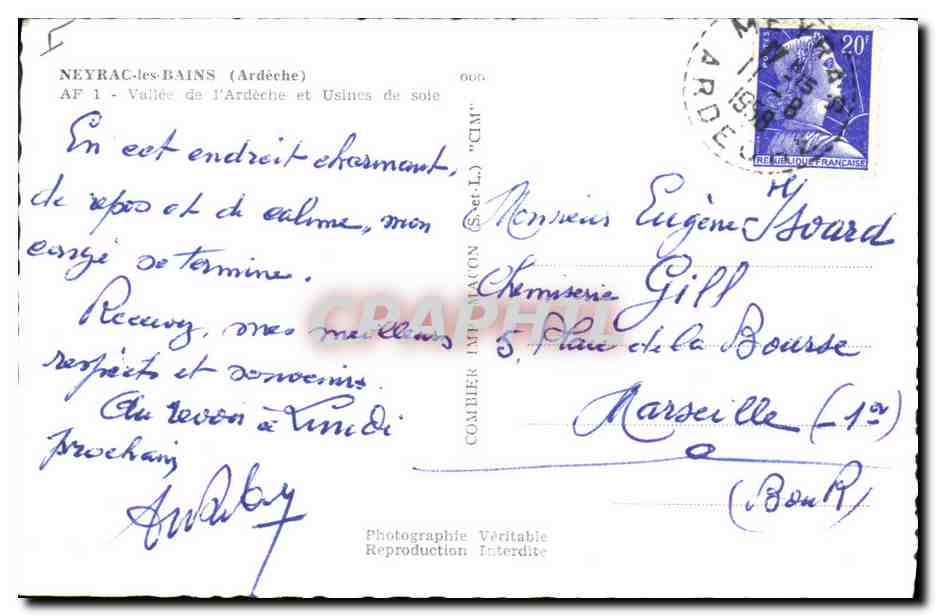 NEYRAC-les-BAINS (Ardèche)
AF 1 - Vallée de l'Ardèche et Usines de soie
En cet endroit charmant,
de repos et de calme, mon
congé se termine.
Recevez, mes meilleurs
respects et souvenirs.
Au revoir à Lundi
prochain
Photographie Véritable
Reproduction Interdite
COMBIER IMP. MACON (S.-et-L.) "CIM"
CRAPHIL
POSTES
20F
REPUBLIQUE FRANÇAISE
1958
ARDECHE
Monsieur Eugène
Chemiserie Gill
5, Place de la Bourse
Marseille (1er)
(B du R)